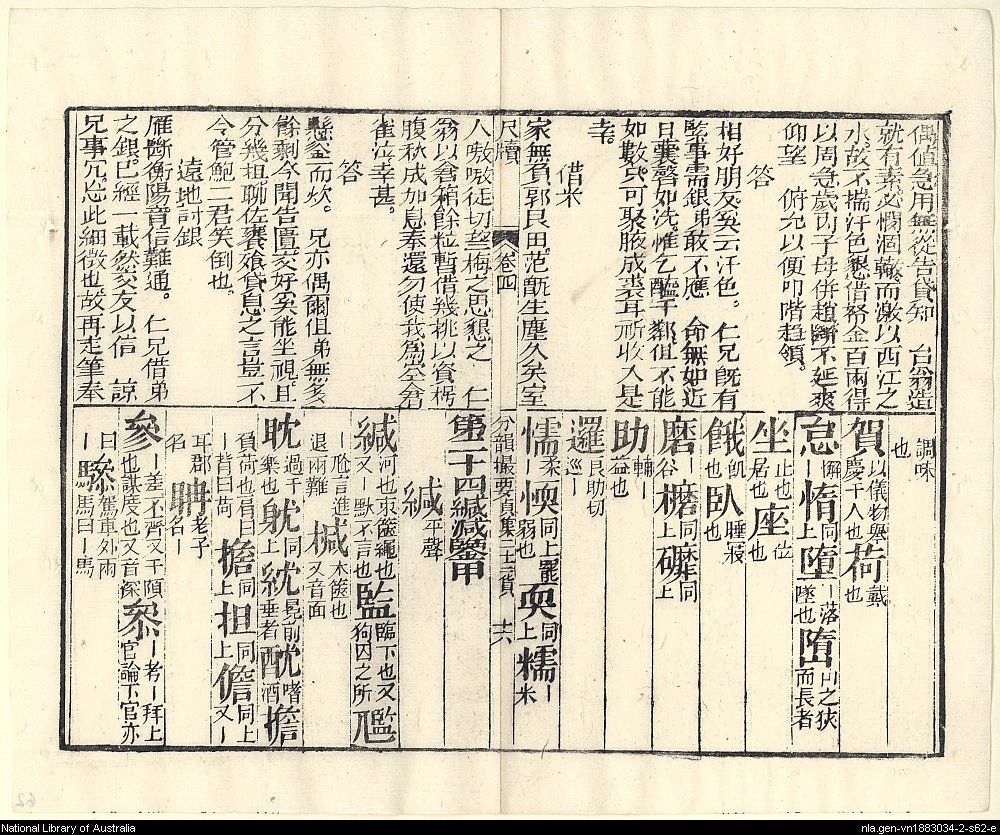 偶值急用無從告貸知　台翁造
就有素必憫涸轍而激以西江之
水故不揣汗色懇借帑金百兩得
以周急歲內子母併趙斷不延爽
仰望　俯允以便叩階趋領。
答
相好朋友奚云汗色。仁兄旣有
緊事需銀弟敢不應　命無如近
日囊罄如洗惟乞醯于鄰但不能
如數只可聚腋成裘耳祈收入是
幸。
借米
家無負郭良田。范甑生塵久矣室
尺牘
卷四
人嗷嗷徒切望梅之思懇之　仁
翁以倉箱餘粒暫借幾挑以資枵
腹秋成加息奉還勿使我為空倉
雀泣幸甚。
答
懸釜而炊。兄亦偶爾但弟無多
餘剩今聞告匱交好奚能坐視。且
分幾担聊佐饔飧貸息之言豈不
令管鮑二君笑倒也。
遠地討銀
雁斷衡陽音信難通。仁兄借弟
之銀已經一載然交友以信　諒
兄事冗忘此細微也。故再走筆奉
調味
也
賀以儀物與慶于人也荷戴也
怠懈惰同上墮落墜也隋山之狹而長者
坐止也居也座位也
餓飢也臥睡寢也
磨谷磨同上
助輔益也
邏巡良助切
懦柔愞同上弱也耎同上糯米
分韻撮要貞集
十六
第二十四緘減鑒甲
緘平聲
緘河也束篋繩也又默不言也監臨下也又拘囚之所尶
尬言進退兩難椷木篋也又音面
耽過于樂也躭同上紞冕前垂者酖嗜酒擔
負荷也肩曰背曰荷擔同上担同上儋同上又
耳郡名聃老子名
參差不齊又干預也謀度也又音深叅考拜上官論下官亦
曰驂駕車外兩馬曰馬
National Library of Australia
nla.gen-vn1883034-2-s62-e